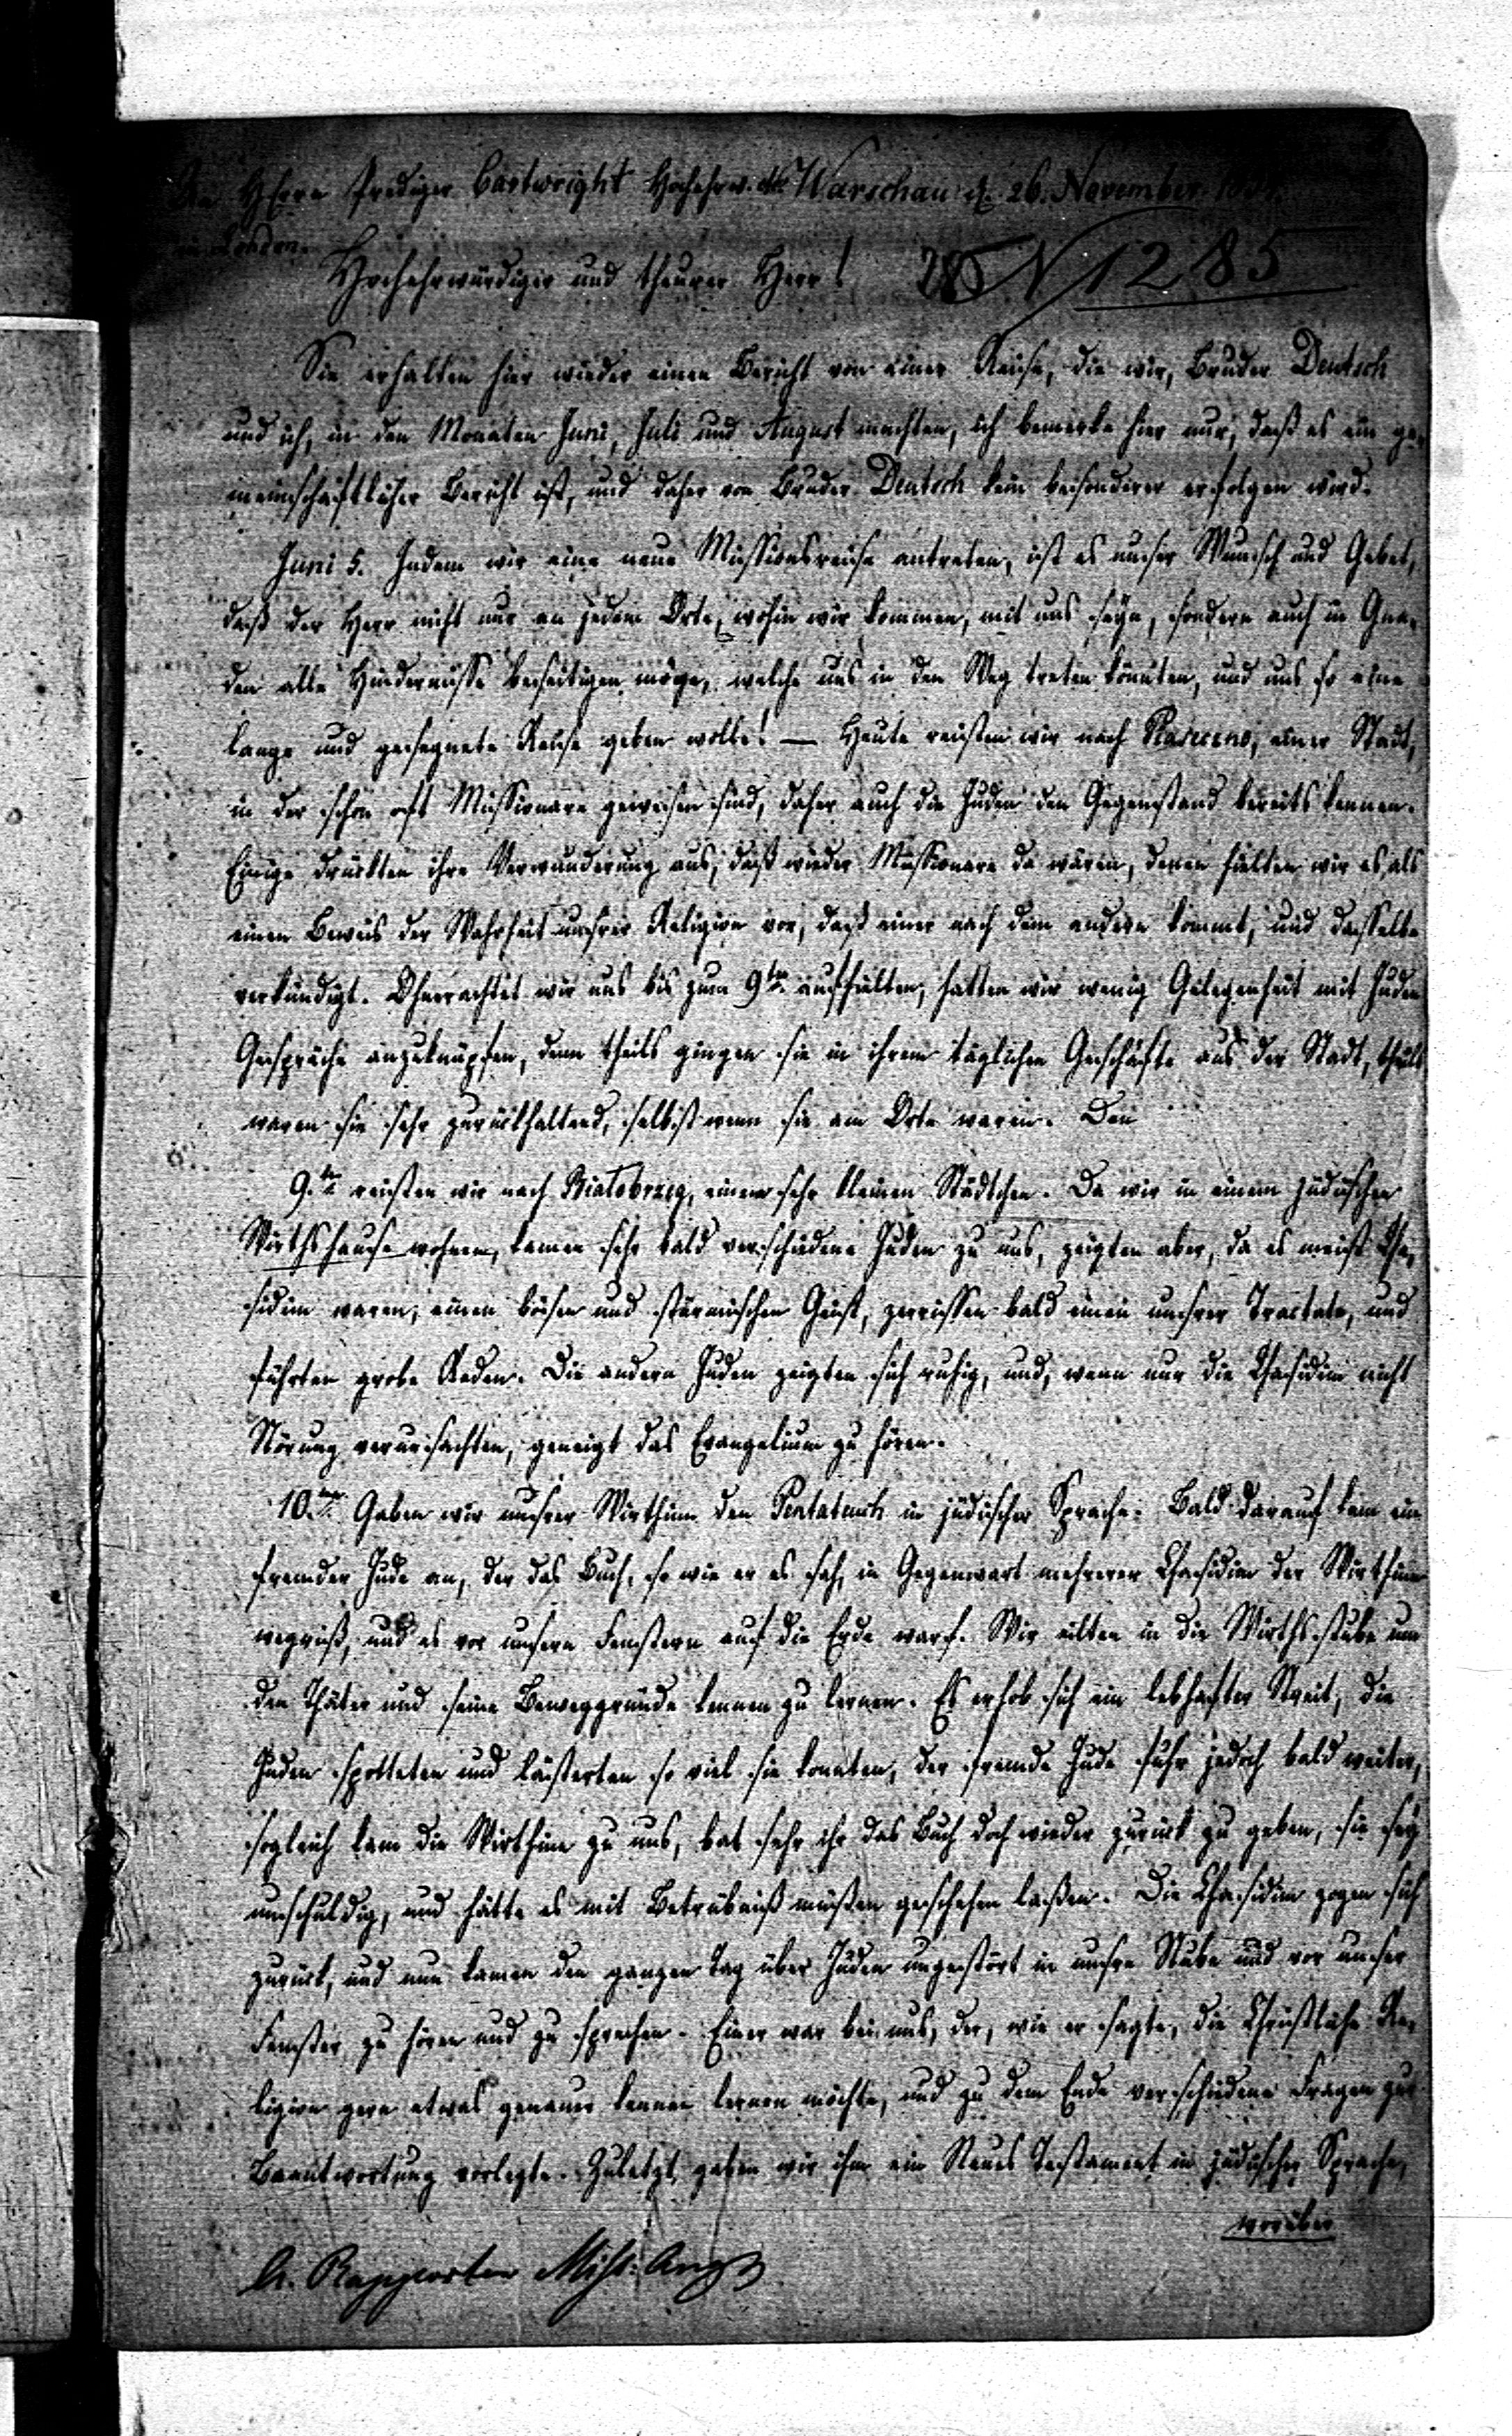 An Herrn Prediger Cartwright Hochehrw. Warschau d. 26. November
in London.
Hochehrwürdiger und theurer Herr! N 1285
Sie erhalten hier wieder einen Bericht von einer Reise, die wir, Bruder Deutsch
und ich, in den Monaten Juni, Juli und August machten, ich bemerke hier nur, daß es ein ge-
meinschaftlicher Bericht ist, und daher von Bruder Deutsch kein besonderer erfolgen wird.
Juni 5. Indem wir eine neue Missionsreise antreten, ist es unser Wunsch und Gebet,
daß der Herr nicht nur an jedem Orte, wohin wir kommen, mit uns seyn, sondern auch in Gna-
den alle Hindernisse beseitigen möge, welche uns in den Weg treten könnten, und uns so eine
lange und gesegnete Reise geben wolle! — Heute reisten wir nach Piaseczno, einer Stadt,
in der schon oft Missionare gewesen sind, daher auch die Juden den Gegenstand bereits kennen.
Einige drückten ihre Verwunderung aus, daß wieder Missionare da wären, denen hielten wir es als
einen Beweis der Wahrheit unsrer Religion vor, daß einer nach dem andern kommt, und dasselbe
verkündigt. Ohnerachtet wir uns bis zum 9ten aufhielten, hatten wir wenig Gelegenheit mit Juden
Gespräche anzuknüpfen, denn theils gingen sie in ihrem täglichen Geschäfte aus der Stadt, theils
waren sie sehr zurückhaltend, selbst wenn sie am Orte waren. Den
9.ten reisten wir nach Białobrzeg, einem sehr kleinen Städtchen. Da wir in einem jüdischen
Wirthshause wohnen, kamen sehr bald verschiedene Juden zu uns, zeigten aber, da es meist Cha-
sidim waren, einen bösen und stürmischen Geist, zerrissen bald einen unsrer Tractate, und
führten grobe Reden. Die andern Juden zeigten sich ruhig, und, wenn nur die Chasidim nicht
Störung verursachten, geneigt das Evangelium zu hören.
10.ten Gaben wir unsrer Wirthinn den Pentateuch in jüdischer Sprache. Bald darauf kam ein
fremder Jude an, der das Buch, so wie er es sah, in Gegenwart mehrerer Chasidim der Wirthinn
wegriß, und es vor unsern Fenstern auf die Erde warf. Wir eilten in die Wirthsstube um
den Thäter und seine Beweggründe kennen zu lernen. Es erhob sich ein lebhafter Streit, die
Juden spotteten und lästerten so viel sie konnten, der fremde Jude fuhr jedoch bald weiter,
sogleich kam die Wirthinn zu uns, bat sehr ihr das Buch doch wieder zurück zu geben, sie sey
unschuldig, und hätte es mit Betrübniß müßen geschehen laßen. Die Chasidim zogen sich
zurück, und nun kamen den ganzen Tag über Juden ungestört in unsre Stube und vor unser
Fenster zu hören und zu sprechen. Einer war bei uns, der, wie er sagte, die Christliche Re-
ligion gern etwas genauer kennen lernen möchte, und zu dem Ende verschiedene Fragen zur
Beantwortung vorlegte. Zuletzt gaben wir ihm ein Neues Testament in jüdischer Sprache,
worüber